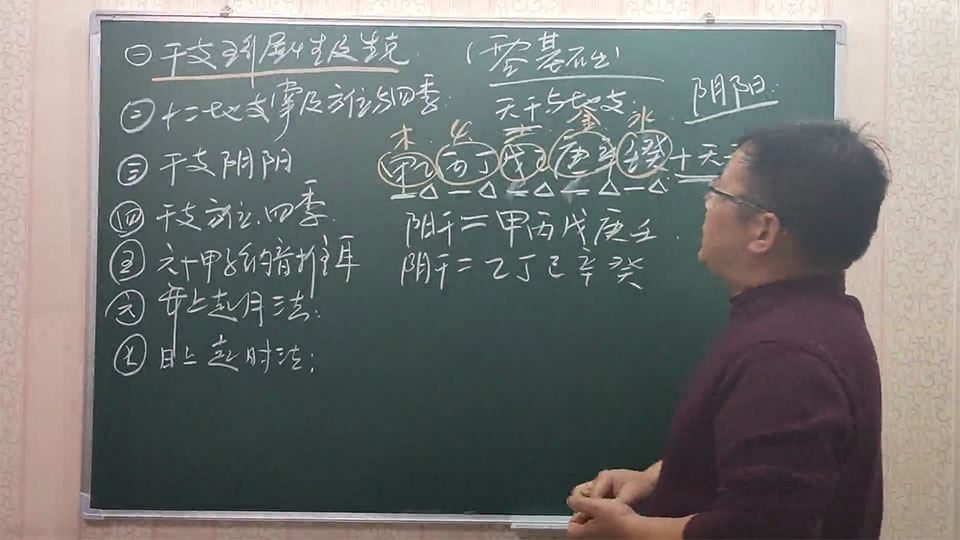 ㊀ 干支五行属性及生克
㊁ 十二地支掌及方位与四季:
㊂ 干支阴阳
㊃ 干支方位.四季.
㊄ 六十甲子纳音推耳
㊅ 年上起月法:
㊆ 日上起时法;
(零基础)
阴阳:
天干与地支:
木 火 土 金 水
甲乙 丙丁 戊己 庚辛 壬癸 十天干
阴干=甲丙戊庚壬.
阴干=乙丁己辛癸